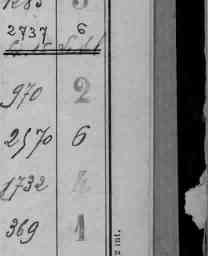 2737 6
970 2
2570 6
1732
369 1
2 int.